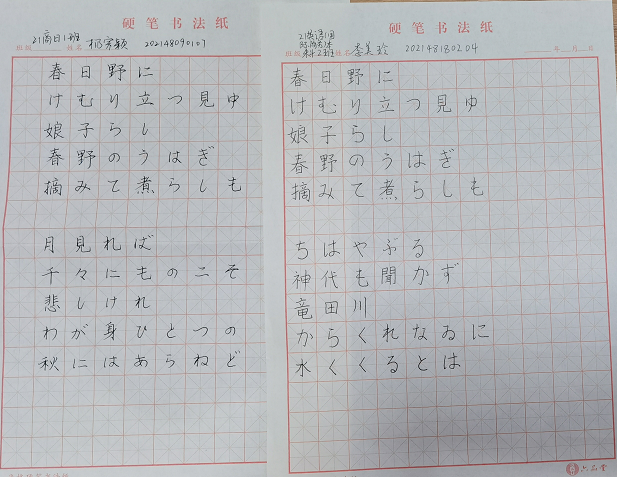 硬笔书法纸
21商日1班 姓名 202148090107
春日野に
けむり立つ見ゆ
娘子らし
春野のうはぎ
摘みて煮らしも
月見れば
千々にものこそ
悲しけれ
わが身ひとつの
秋にはあらねど
硬笔书法纸
班级 姓名 李美玲 202148180204 年 月 日
春日野に
けむり立つ見ゆ
娘子らし
春野のうはぎ
摘みて煮らしも
ちはやぶる
神代も聞かず
竜田川
からくれなゐに
水くくるとは
六品堂